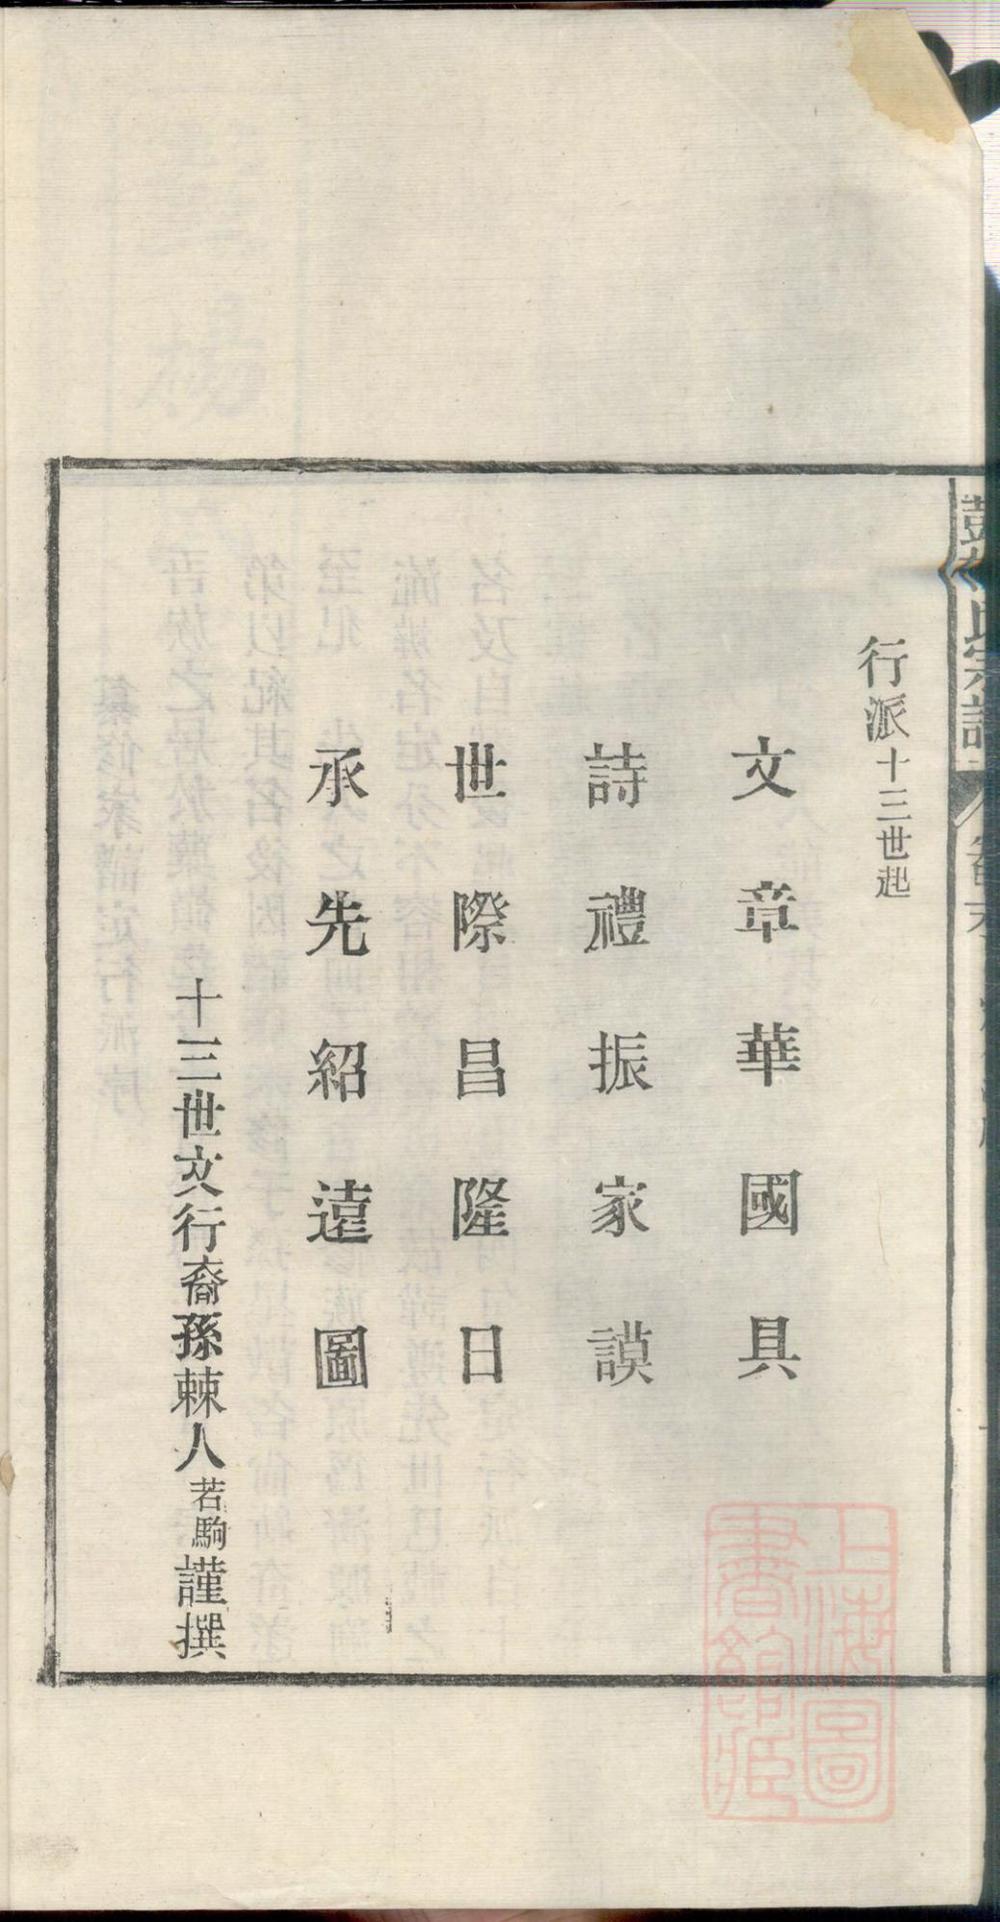 行派十三世起
文章華國具
詩禮振家謨
世際昌隆日
承先紹遠圖
十三世文行裔孫棘人若駒謹撰
上海圖書館藏